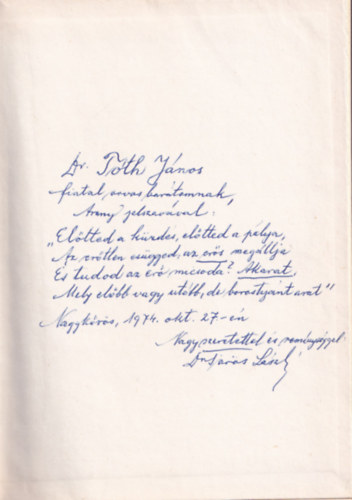 Dr. Tóth János
fiatal orvos barátomnak,
Arany jelszavával:
„Előtted a küzdés, előtted a pálya,
Az erőtlen csügged, az erős megállja
És tudod az erő micsoda? Akarat,
Mely előbb vagy utóbb, de borostyánt arat"
Nagykőrös, 1974. okt. 27-én
Nagy szeretettel és reménységgel:
Dr László